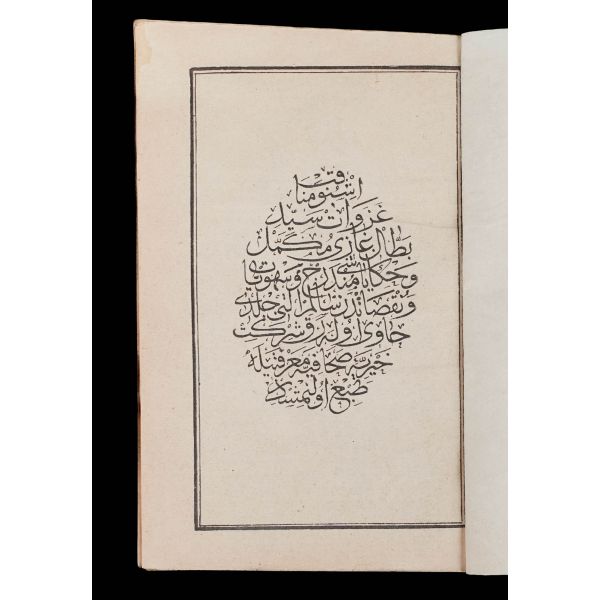 اشبو مناقب
غزوات سيد
بطال غازى مكمل
و حكاياتى مندرج و سهويات
و نقصاندن سالم التى جلدى
حاوى اوله رق شركت
خيريه صحافيه معرفتيله
طبع اولنمشدر